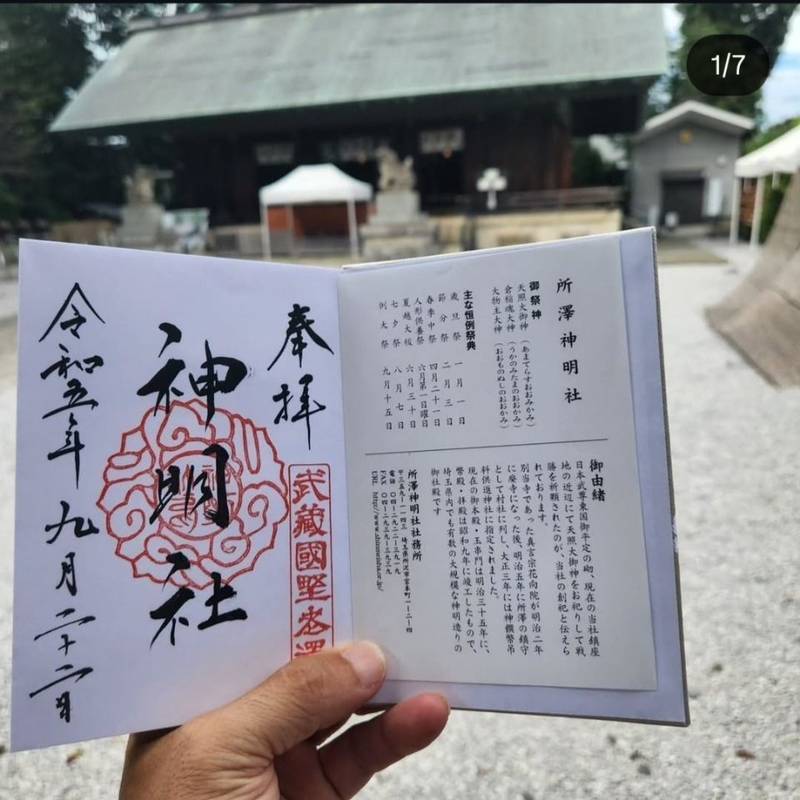 1/7
所澤神明社
御祭神
天照大御神（あまてらすおおみかみ）
倉稲魂大神（うかのみたまのおおかみ）
大物主大神（おおものぬしのおおかみ）
主な恒例祭典
歳旦祭　一月一日
節分祭　二月三日
春季中祭　四月二十一日
人形供養祭　六月第一日曜日
夏越大祓　六月三十日
七夕祭　八月七日
例大祭　九月十五日
御由緒
日本武尊東国御平定の砌、現在の当社鎮座
地の近辺にて天照大御神をお祀りして戦
勝を祈願されたのが、当社の創祀と伝えら
れております。
別当寺であった真言宗花向院が明治二年
に廃寺になった後、明治五年に所澤の鎮守
として村社に列し、大正三年には神饌幣帛
料供進神社に指定されました。
現在の御本殿・玉串門は明治三十五年に、
幣殿・拝殿は昭和九年に竣工したもので、
埼玉県内でも有数の大規模な神明造りの
御社殿です
所澤神明社社務所
〒三五九－一一四三　埼玉県所沢市宮本町一－二－四
電話　〇四－二九二二－三九一九
FAX　〇四
URL http://www.shinmeisha.or.jp/
奉拝
武藏國野老澤
神明社
令和五年九月二十二日